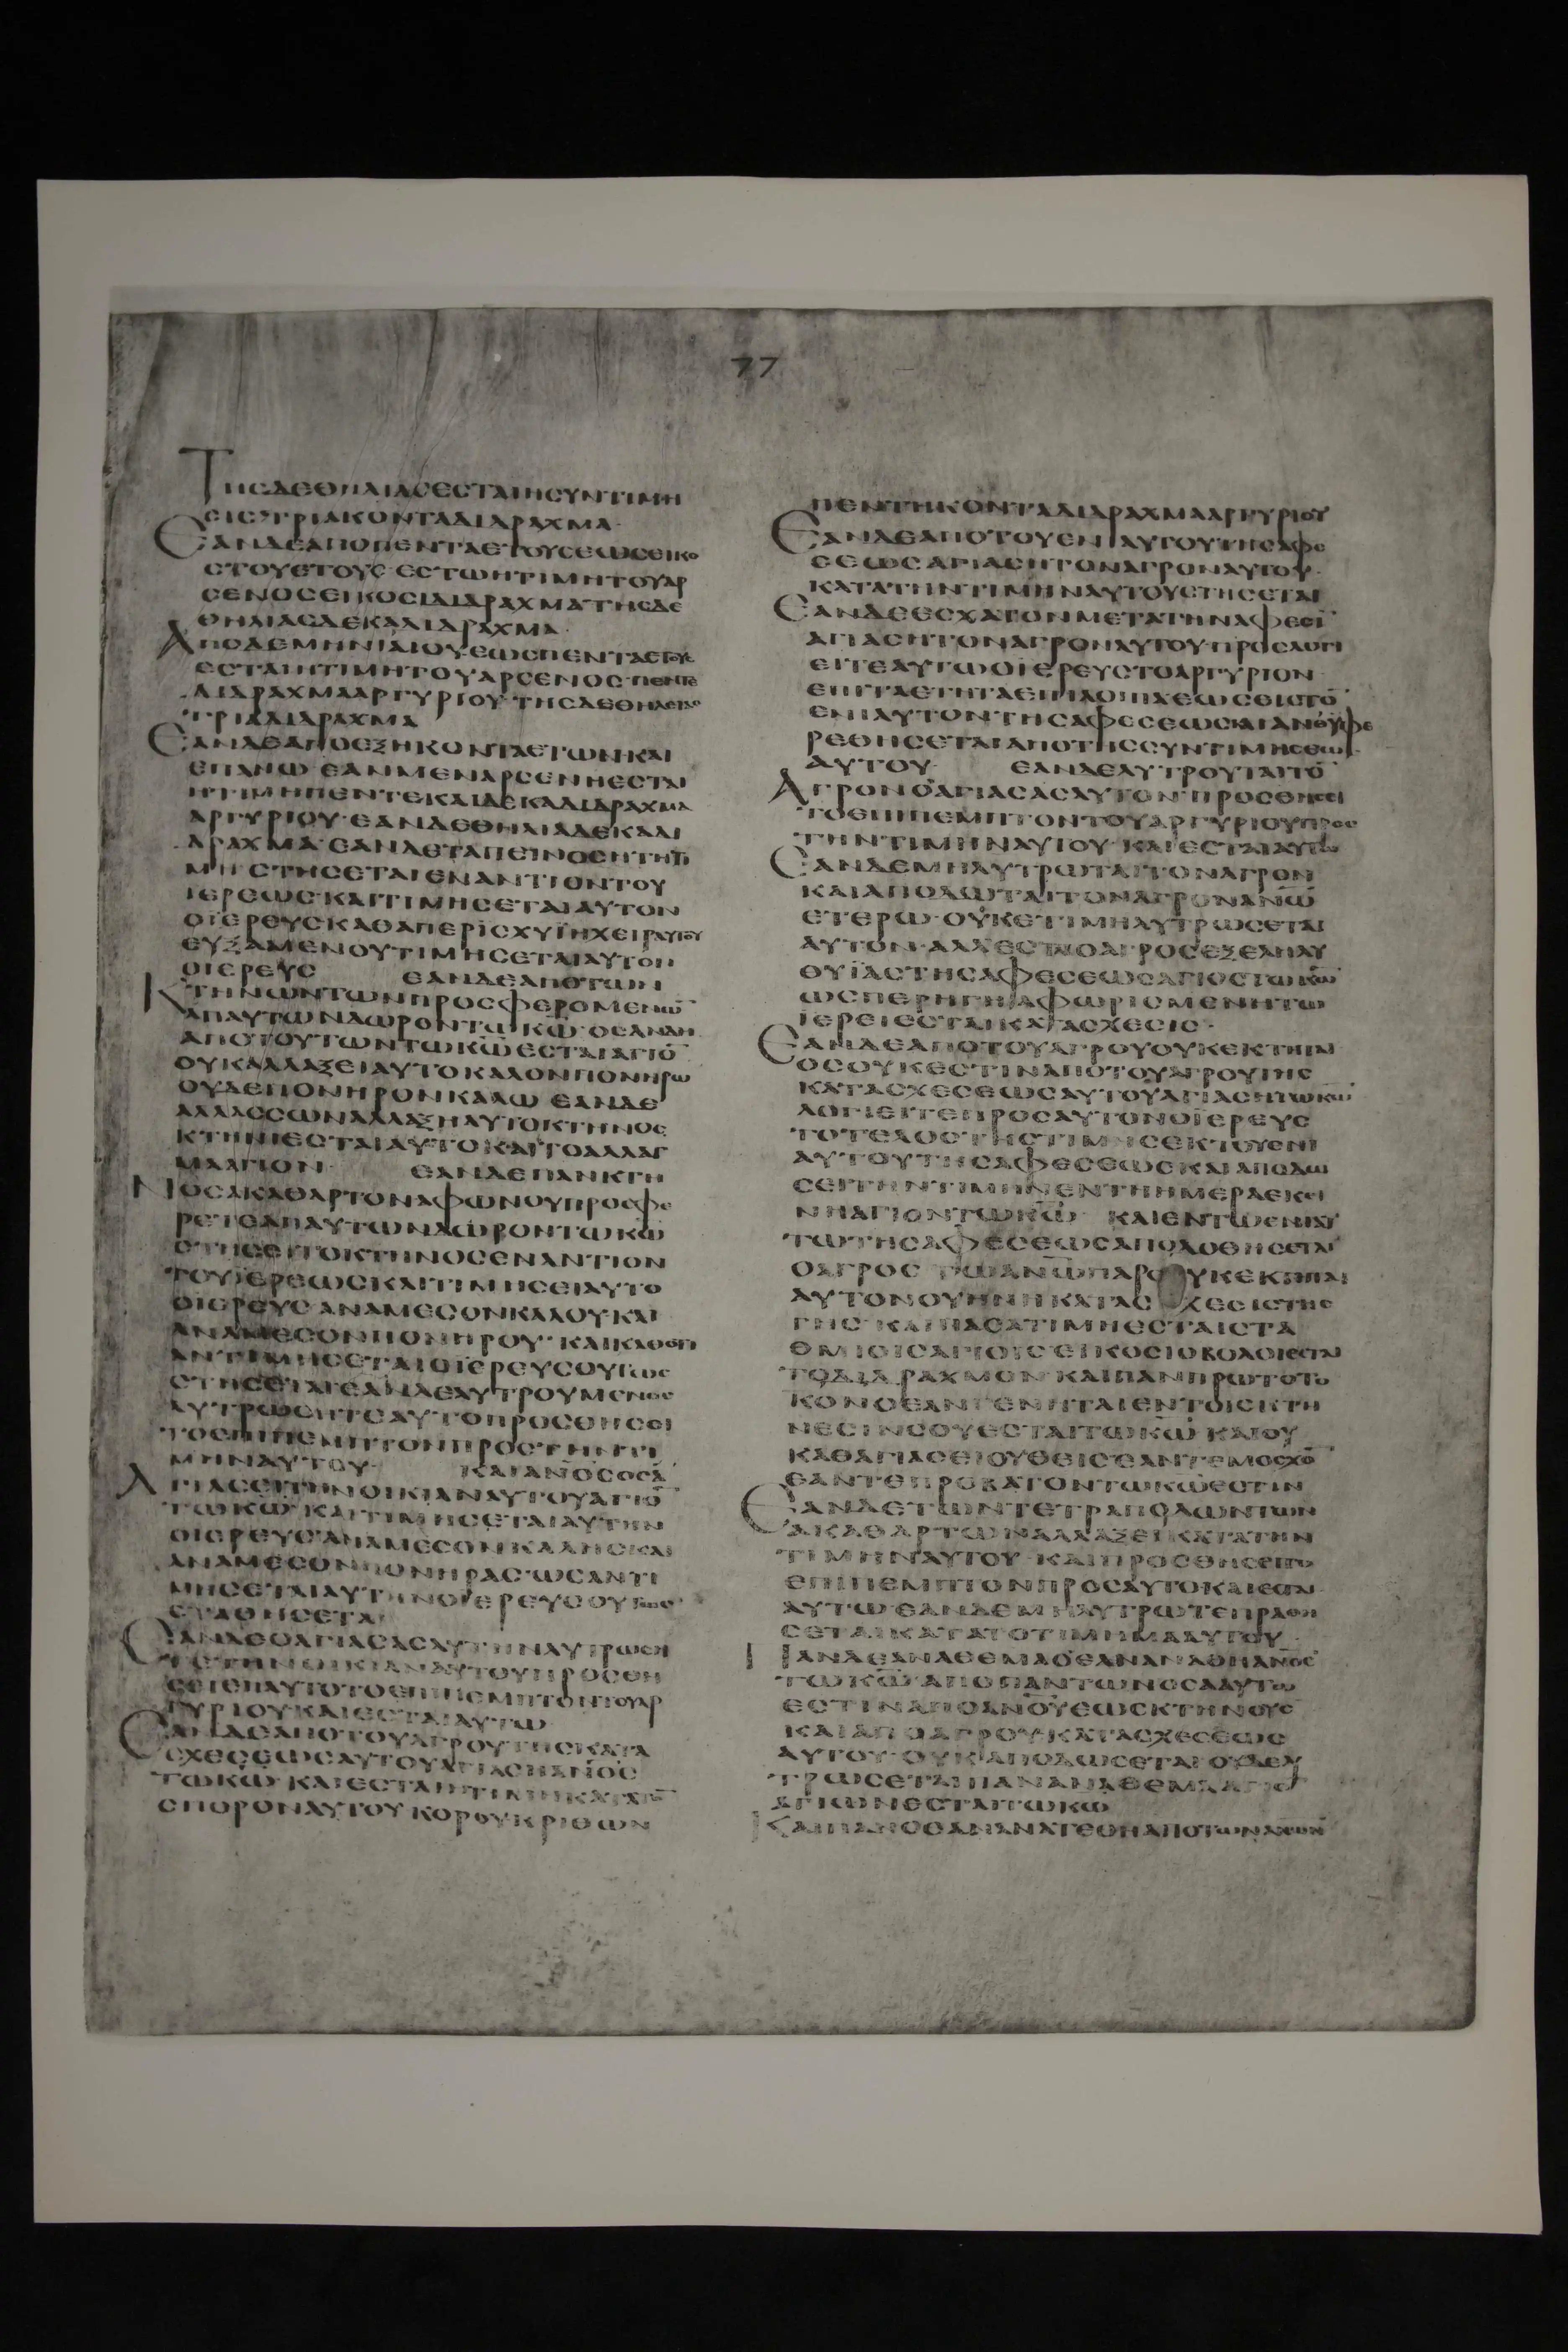 77
ΤΗСΔΕΘΗΛΙΑСΕСΤΑΙΗСΥΝΤΙΜΗ
СΙСΤΡΙΑΚΟΝΤΑΔΙΔΡΑΧΜΑ·
ΕΑΝΔΕΑΠΟΠΕΝΤΑΕΤΟΥСΕΩСΕΙΚΟ
СΤΟΥΕΤΟΥС·ΕСΤΩΗΤΙΜΗΤΟΥΑΡ
СΕΝΟСΕΙΚΟСΙΔΙΔΡΑΧΜΑΤΗСΔΕ
ΘΗΛΙΑСΔΕΚΑΔΙΔΡΑΧΜΑ·
ΑΠΟΔΕΜΗΝΙΑΙΟΥ·ΕΩСΠΕΝΤΑΕΤΟΥС
ΕСΤΑΙΗΤΙΜΗΤΟΥΑΡСΕΝΟС·ΠΕΝΤΕ
ΔΙΔΡΑΧΜΑΑΡΓΥΡΙΟΥ·ΤΗСΔΕΘΗΛΕΙΑС
ΤΡΙΑΔΙΔΡΑΧΜΑ
ΕΑΝΔΕΑΠΟΕΞΗΚΟΝΤΑΕΤΩΝΚΑΙ
ΕΠΑΝΩ·ΕΑΝΜΕΝΑΡСΕΝΗΕСΤΑΙ
ΗΤΙΜΗΠΕΝΤΕΚΑΙΔΕΚΑΔΙΔΡΑΧΜΑ
ΑΡΓΥΡΙΟΥ·ΕΑΝΔΕΘΗΛΙΑΔΕΚΑΔΙ
ΔΡΑΧΜΑ·ΕΑΝΔΕΤΑΠΕΙΝΟСΗΤΗΤΙ
ΜΗСΤΗСΕΤΑΙΕΝΑΝΤΙΟΝΤΟΥ
ΙΕΡΕΩС·ΚΑΙΤΙΜΗСΕΤΑΙΑΥΤΟΝ
ΟΪΕΡΕΥСΚΑΘΑΠΕΡΪСΧΥΪΗΧΕΙΡΑΥΤΟΥ
ΕΥΞΑΜΕΝΟΥΤΙΜΗСΕΤΑΙΑΥΤΟΝ
ΟΙΕΡΕΥС ΕΑΝΔΕΑΠΟΤΩΝ
ΚΤΗΝΩΝΤΩΝΠΡΟСΦΕΡΟΜΕΝΩ̄
ΑΠΑΥΤΩΝΔΩΡΟΝΤΩΚ̄Ω̄·ΟСΑΝΔΗ
ΑΠΟΤΟΥΤΩΝΤΩΚ̄Ω̄ΕСΤΑΙΑΓΙΟ̄
ΟΥΚΑΛΛΑΞΕΙΑΥΤΟΚΑΛΟΝΠΟΝΗΡΩ
ΟΥΔΕΠΟΝΗΡΟΝΚΑΛΩ ΕΑΝΔΕ
ΑΛΛΑССΩΝΑΛΛΑΞΗΑΥΤΟΚΤΗΝΟС
ΚΤΗΝΙΕСΤΑΙΑΥΤΟΚΑΙΤΟΑΛΛΑΓ
ΜΑΑΓΙΟΝ· ΕΑΝΔΕΠΑΝΚΤΗ
ΝΟСΑΚΑΘΑΡΤΟΝΑΦΩΝΟΥΠΡΟСΦΕ
ΡΕΤΕΑΠΑΥΤΩΝΔΩΡΟΝΤΩΚ̄Ω̄
СΤΗСΕΙΤΟΚΤΗΝΟСΕΝΑΝΤΙΟΝ
ΤΟΥΪΕΡΕΩСΚΑΙΤΙΜΗСΕΙΑΥΤΟ
ΟΙΕΡΕΥСΑΝΑΜΕСΟΝΚΑΛΟΥΚΑΙ
ΑΝΑΜΕСΟΝΠΟΝΗΡΟΥ·ΚΑΙΚΑΘΟΤΙ
ΑΝΤΙΜΗСΕΤΑΙΟΪΕΡΕΥСΟΥΤΩС
СΤΗСΕΤΑΙΕΑΝΔΕΛΥΤΡΟΥΜΕΝΟС
ΛΥΤΡΩСΗΤΕΑΥΤΟΠΡΟСΘΗСΕΙ
ΤΟΕΠΙΠΕΜΠΤΟΝΠΡΟСΤΗΝΤΙ
ΜΗΝΑΥΤΟΥ· ΚΑΙΑΝΟ̄СΟСᾹ
ΑΓΙΑСΕΙΤΗΝΟΙΚΙΑΝΑΥΤΟΥΑΓΙΟ̄
ΤΩΚ̄Ω̄·ΚΑΙΤΙΜΗСΕΤΑΙΑΥΤΗΝ
ΟΙΕΡΕΥСΑΝΑΜΕСΟΝΚΑΛΗСΚΑΙ
ΑΝΑΜΕСΟΝΠΟΝΗΡΑС·ΩСΑΝΤΙ
ΜΗСΕΤΑΙΑΥΤΗΝΟΪΕΡΕΥСΟΥΤΩС
СΤΑΘΗСΕΤΑΙ
ΕΑΝΔΕΟΑΓΙΑСΑСΑΥΤΗΝΛΥΤΡΩСΗ
ΤΕΤΗΝΟΙΚΙΑΝΑΥΤΟΥΠΡΟСΘΗ
СΕΙΕΠΑΥΤΟΤΟΕΠΙΠΕΜΠΤΟΝΤΟΥΑΡ
ΓΥΡΙΟΥΚΑΙΕСΤΑΙΑΥΤΩ
ΕΑΝΔΕΑΠΟΤΟΥΑΓΡΟΥΤΗСΚΑΤΑ
СΧΕСΕΩСΑΥΤΟΥΑΓΙΑСΗΑΝ̄ΟС
ΤΩΚ̄Ω̄·ΚΑΙΕСΤΑΙΗΤΙΜΗΚΑΤΑΤΟ̄
СΠΟΡΟΝΑΥΤΟΥΚΟΡΟΥΚΡΙΘΩΝ
ΠΕΝΤΗΚΟΝΤΑΔΙΔΡΑΧΜΑΑΡΓΥΡΙΟΥ
ΕΑΝΔΕΑΠΟΤΟΥΕΝΙΑΥΤΟΥΤΗСΑΦΕ
СΕΩСΑΓΙΑСΗΤΟΝΑΓΡΟΝΑΥΤΟΥ·
ΚΑΤΑΤΗΝΤΙΜΗΝΑΥΤΟΥСΤΗСΕΤΑΙ
ΕΑΝΔΕΕСΧΑΤΟΝΜΕΤΑΤΗΝΑΦΕСΪ
ΑΓΙΑСΗΤΟΝΑΓΡΟΝΑΥΤΟΥ·ΠΡΟСΛΟΓΙ
ΕΙΤΕΑΥΤΩΟΪΕΡΕΥСΤΟΑΡΓΥΡΙΟΝ
ΕΠΙΤΑΕΤΗΤΑΕΠΙΛΟΙΠΑΕΩСΕΙСΤΟ̄
ΕΝΙΑΥΤΟΝΤΗСΑΦΕСΕΩСΚΑΙΑΝΘΥΦΕ
ΡΕΘΗСΕΤΑΙΑΠΟΤΗССΥΝΤΙΜΗСΕΩС
ΑΥΤΟΥ· ΕΑΝΔΕΛΥΤΡΟΥΤΑΙΤΟ̄
ΑΓΡΟΝΟΑΓΙΑСΑСΑΥΤΟΝ·ΠΡΟСΘΗСΕΙ
ΤΟΕΠΙΠΕΜΠΤΟΝΤΟΥΑΡΓΥΡΙΟΥΠΡΟС
ΤΗΝΤΙΜΗΝΑΥΤΟΥ·ΚΑΙΕСΤΑΙΑΥΤΩ
ΕΑΝΔΕΜΗΛΥΤΡΩΤΑΙΤΟΝΑΓΡΟΝ
ΚΑΙΑΠΟΔΩΤΑΙΤΟΝΑΓΡΟΝΑΝ̄Ω̄
ΕΤΕΡΩ·ΟΥΚΕΤΙΜΗΛΥΤΡΩСΕΤΑΙ
ΑΥΤΟΝ·ΑΛΛΕСΤΑΙΟΑΓΡΟСΕΞΕΛΗΛΥ
ΘΥΪΑСΤΗСΑΦΕСΕΩСΑΓΙΟСΤΩΚ̄Ω̄
ΩСΠΕΡΗΓΗΗΑΦΩΡΙСΜΕΝΗΤΩ
ΪΕΡΕΙΕСΤΑΙΚΑΤΑСΧΕСΙС·
ΕΑΝΔΕΑΠΟΤΟΥΑΓΡΟΥΟΥΚΕΚΤΗΤΑΙ
ΟСΟΥΚΕСΤΙΝΑΠΟΤΟΥΑΓΡΟΥΤΗС
ΚΑΤΑСΧΕСΕΩСΑΥΤΟΥΑΓΙΑСΗΤΩΚ̄Ω̄
ΛΟΓΙΕΙΤΕΠΡΟСΑΥΤΟΝΟΪΕΡΕΥС
ΤΟΤΕΛΟСΤΗСΤΙΜΗСΕΚΤΟΥΕΝΙ
ΑΥΤΟΥΤΗСΑΦΕСΕΩСΚΑΙΑΠΟΔΩ
СΕΙΤΗΝΤΙΜΗΝΕΝΤΗΗΜΕΡΑΕΚΕΙ
ΝΗΑΓΙΟΝΤΩΚ̄Ω̄ ΚΑΙΕΝΤΩΕΝΙΑΥ
ΤΩΤΗСΑΦΕСΕΩСΑΠΟΔΟΘΗСΕΤΑΙ
ΟΑΓΡΟС ΤΩΑΝ̄Ω̄ΠΑΡΟΥΚΕΚΤΗΤΑΙ
ΑΥΤΟΝΟΥΗΝΗΚΑΤΑСΧΕСΙСΤΗС
ΓΗС·ΚΑΙΠΑСΑΤΙΜΗΕСΤΑΙСΤΑ
ΘΜΙΟΙСΑΓΙΟΙСΕΙΚΟСΙΟΒΟΛΟΙΕСΤΑΙ
ΤΟΔΙΔΡΑΧΜΟΝ·ΚΑΙΠΑΝΠΡΩΤΟΤΟ
ΚΟΝΟΕΑΝΓΕΝΗΤΑΙΕΝΤΟΙСΚΤΗ
ΝΕСΙΝСΟΥΕСΤΑΙΤΩΚ̄Ω̄ ΚΑΙΟΥ
ΚΑΘΑΓΙΑСΕΙΟΥΘΕΙСΕΑΝΤΕΜΟСΧΟ̄
ΕΑΝΤΕΠΡΟΒΑΤΟΝΤΩΚ̄Ω̄ΕСΤΙΝ
ΕΑΝΔΕΤΩΝΤΕΤΡΑΠΟΔΩΝΤΩΝ
ΑΚΑΘΑΡΤΩΝΑΛΛΑΞΕΙΚΑΤΑΤΗΝ
ΤΙΜΗΝΑΥΤΟΥ·ΚΑΙΠΡΟСΘΗСΕΙΤΟ
ΕΠΙΠΕΜΠΤΟΝΠΡΟСΑΥΤΟΚΑΙΕСΤΑΙ
ΑΥΤΩ·ΕΑΝΔΕΜΗΛΥΤΡΩΤΕΠΡΑΘΗ
СΕΤΑΙΚΑΤΑΤΟΤΙΜΗΜΑΑΥΤΟΥ
ΠΑΝΔΕΑΝΑΘΕΜΑΟΕΑΝΑΝΑΘΗΑΝ̄ΟС
ΤΩΚ̄Ω̄·ΑΠΟΠΑΝΤΩΝΟСΑΑΥΤΩ
ΕСΤΙΝΑΠΟΑΝ̄ΟΥΕΩСΚΤΗΝΟΥС
ΚΑΙΑΠΟΑΓΡΟΥ·ΚΑΤΑСΧΕСΕΩС
ΑΥΤΟΥ·ΟΥΚΑΠΟΔΩСΕΤΑΙΟΥΔΕΛΥ
ΤΡΩСΕΤΑΙΠΑΝΑΝΑΘΕΜΑΑΓΙΟ̄
ΑΓΙΩΝΕСΤΑΙΤΩΚ̄Ω̄
ΚΑΙΠΑΝΟΕΑΝΑΝΑΤΕΘΗΑΠΟΤΩΝΑΝ̄ΩΝ̄